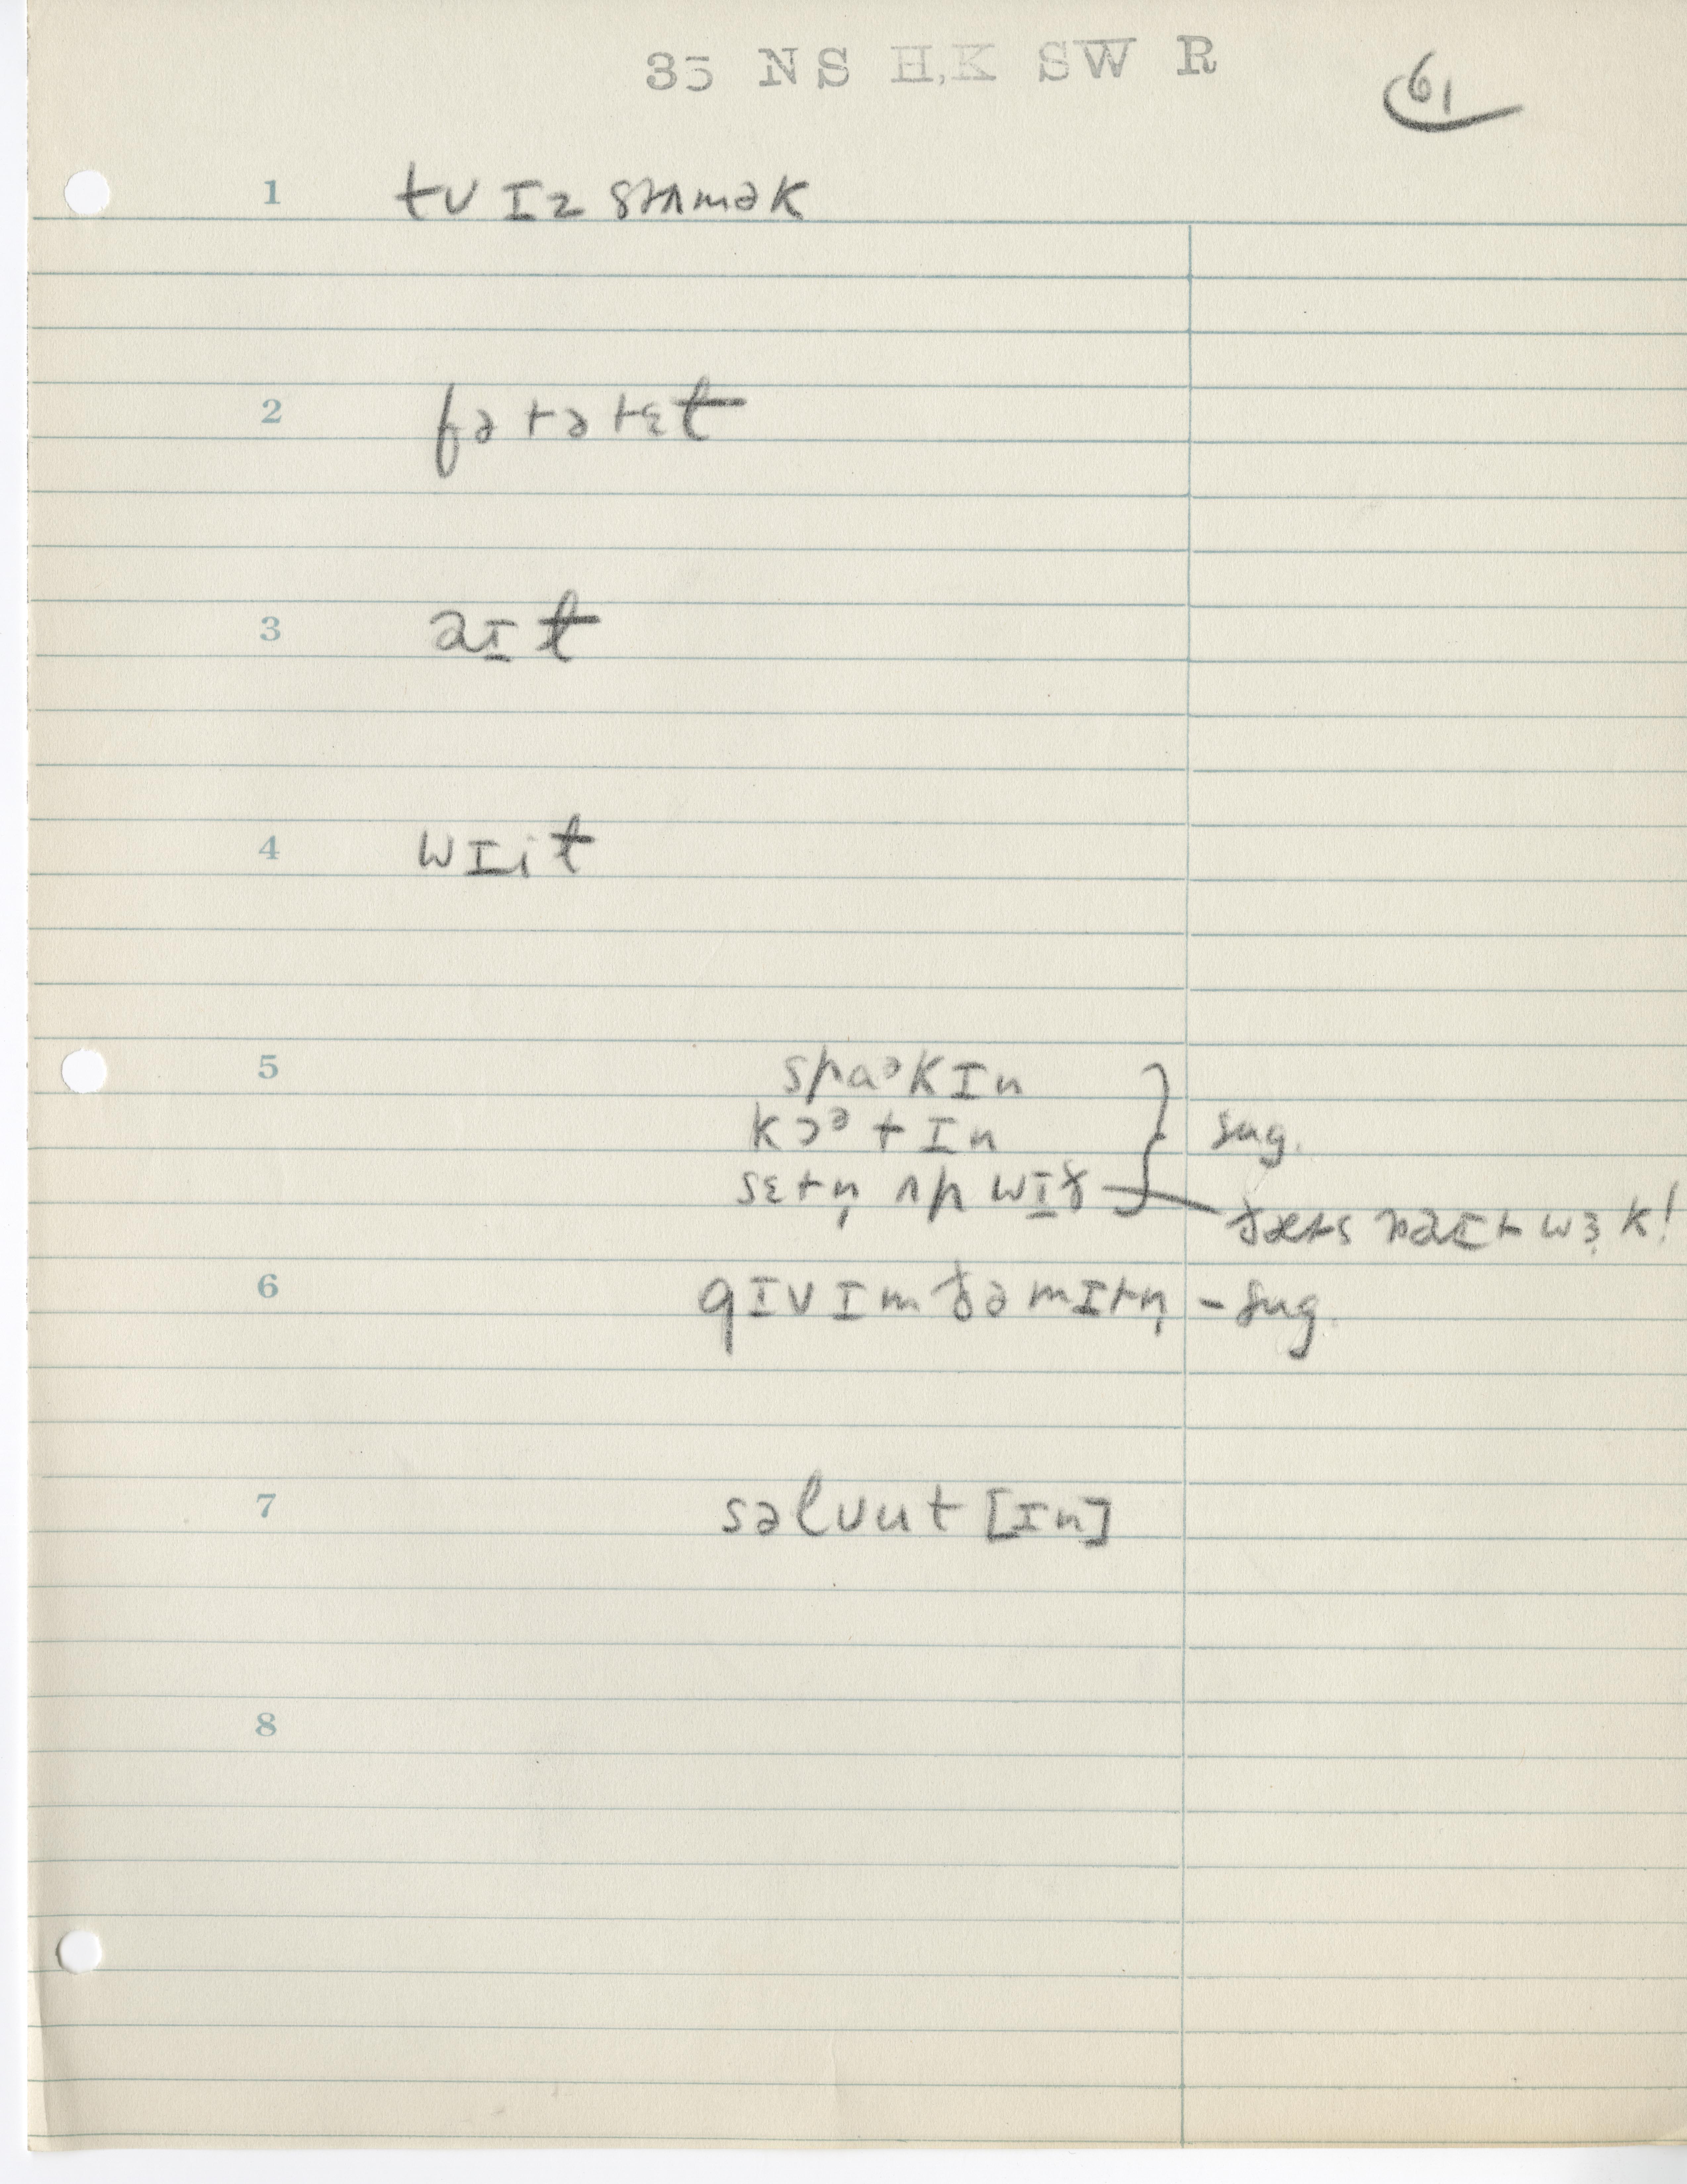 35 NS H,K SW R
61
1 tʊ ɪz stʌmək
2 fətəɛt
3 aɪt
4 wɪit
5 spaᵊkɪn
kɔᵊtɪn } sug.
sɛtn̩ ʌp wɪð — ðæts raɪt wɜk!
6 gɪv ɪm ðə mɪtn̩ – sug.
7 səlvut [ɪn]
8